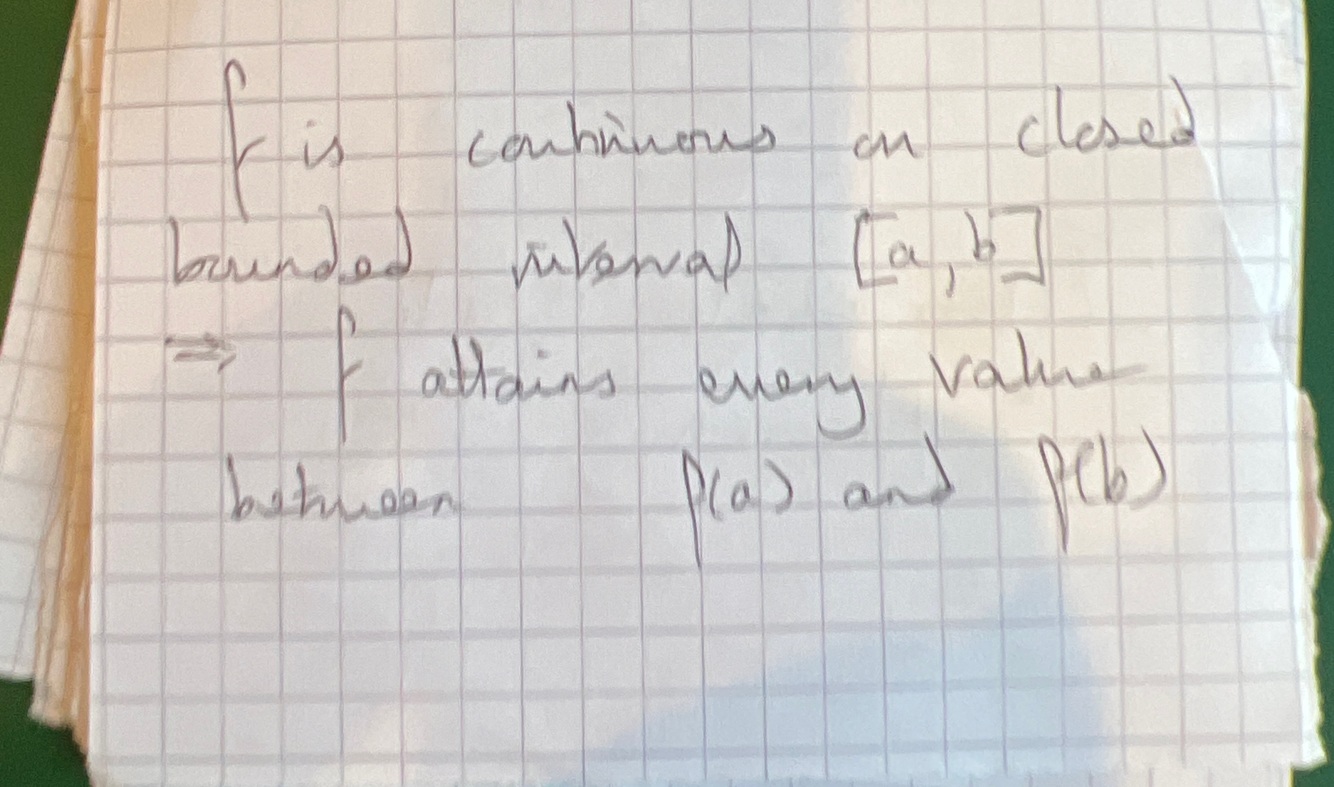 f is continuous on closed
bounded interval [a, b]
⇒ f attains every value
between f(a) and f(b)